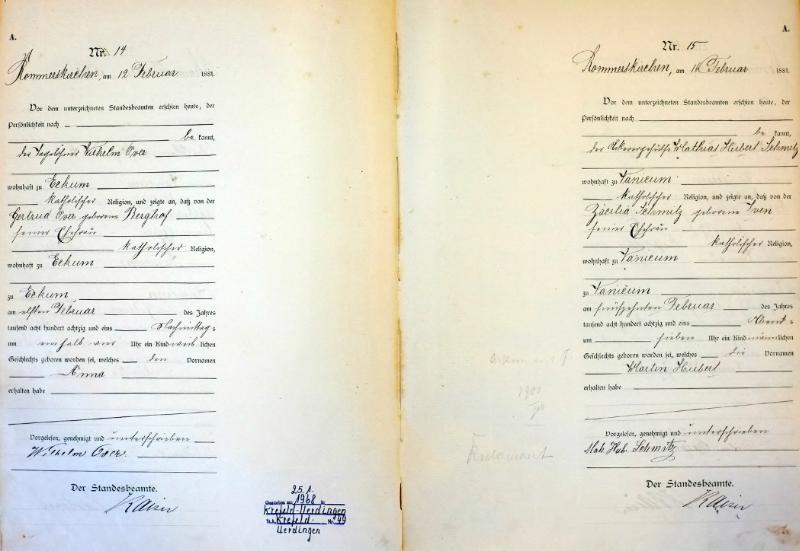 A.
Nr. 14
Rommerskirchen, am 12 Februar 1881.
Vor dem unterzeichneten Standesbeamten erschien heute, der
Persönlichkeit nach
be kannt,
der Tagelöhner Wilhelm Over
wohnhaft zu Eckum
katholischer Religion, und zeigte an, daß von der
Gertrud Over geborene Berghof
seiner Ehefrau
katholischer Religion,
wohnhaft zu Eckum
zu Eckum
am elften Februar des Jahres
tausend acht hundert achtzig und eins Nachmittags
um einhalb vier Uhr ein Kind weiblichen
Geschlechts geboren worden sei, welches den Vornamen
Anna
erhalten habe
Vorgelesen, genehmigt und unterschrieben
Wilhelm Over
Der Standesbeamte.
Kaiser
25.1.
1968
Krefeld-Uerdingen
Krefeld-
Uerdingen
A.
Nr. 15
Rommerskirchen, am Februar 1881.
Vor dem unterzeichneten Standesbeamten erschien heute, der
Persönlichkeit nach
be kannt,
der Ackergehülfe Mathias Hubert Schmitz
wohnhaft zu Vanicum
katholischer Religion, und zeigte an, daß von der
Zäcilia Schmitz geborene Iven
seiner Ehefrau
katholischer Religion,
wohnhaft zu Vanicum
zu Vanicum
am fünfzehnten Februar des Jahres
tausend acht hundert achtzig und eins Abend
um sieben Uhr ein Kind männlichen
Geschlechts geboren worden sei, welches die Vornamen
Martin Hubert
erhalten habe
Vorgelesen, genehmigt und unterschrieben
Math. Hub. Schmitz
Der Standesbeamte.
Kaiser